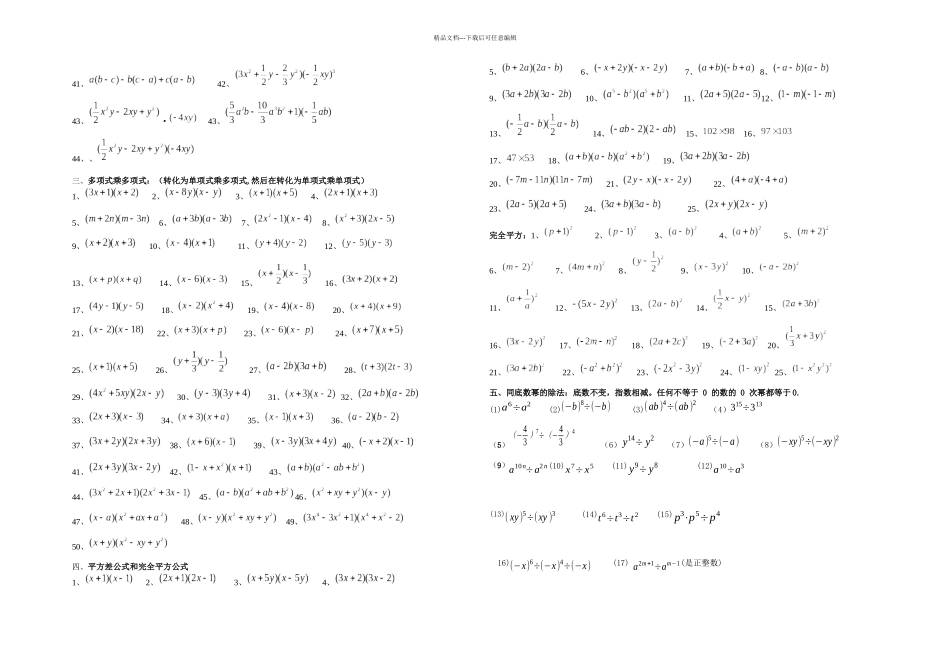 精品文档---下载后可任意编辑
41、a(b－c)－b(c－a)+c(a－b) 42、(3x²+\frac{1}{2}y－\frac{2}{3}y²)(－\frac{1}{2}xy)³
43、(\frac{1}{2}x²y－2xy+y²)·(－4xy) 43、(\frac{5}{3}a²b－\frac{10}{3}a³b²+1)(－\frac{1}{5}ab)
44、、(\frac{1}{2}x²y－2xy+y²)(－4xy)
三、多项式乘多项式：（转化为单项式乘多项式,然后在转化为单项式乘单项式）
1、(3x+1)(x+2) 2、(x－8y)(x－y) 3、(x+1)(x+5) 4、(2x+1)(x+3)
5、(m+2n)(m－3n) 6、(a+3b)(a－3b) 7、(2x²－1)(x－4) 8、(x²+3)(2x－5)
9、(x+2)(x+3) 10、(x－4)(x+1) 11、(y+4)(y－2) 12、(y－5)(y－3)
13、(x+p)(x+q) 14、(x－6)(x－3) 15、(x+\frac{1}{2})(x－\frac{1}{3}) 16、(3x+2)(x+2)
17、(4y－1)(y－5) 18、(x－2)(x²+4) 19、(x－4)(x－8) 20、(x+4)(x+9)
21、(x－2)(x－18) 22、(x+3)(x+p) 23、(x－6)(x－p) 24、(x+7)(x+5)
25、(x+1)(x+5) 26、(y+\frac{1}{3})(y－\frac{1}{2}) 27、(a－2b)(3a+b) 28、(t+3)(2t－3)
29、(4x²+5xy)(2x－y) 30、(y－3)(3y+4) 31、(x+3)(x－2) 32、(2a+b)(a－2b)
33、(2x+3)(x－3) 34、(x+3)(x+a) 35、(x－1)(x+3) 36、(a－2)(b－2)
37、(3x+2y)(2x+3y) 38、(x+6)(x－1) 39、(x－3y)(3x+4y) 40、(－x+2)(x－1)
41、(2x+3y)(3x－2y) 42、(1－x+x²)(x+1) 43、(a+b)(a²－ab+b²)
44、(3x²+2x+1)(2x²+3x－1) 45、(a－b)(a²+ab+b²) 46、(x²+xy+y²)(x－y)
47、(x－a)(x²+ax+a²) 48、(x－y)(x²+xy+y²) 49、(3x⁴－3x²+1)(x⁴+x²－2)
50、(x+y)(x²－xy+y²)
四、平方差公式和完全平方公式
1、(x+1)(x－1) 2、(2x+1)(2x－1) 3、(x+5y)(x－5y) 4、(3x+2)(3x－2)
5、(b+2a)(2a－b) 6、(－x+2y)(－x－2y) 7、(a+b)(－b+a) 8、(－a－b)(a－b)
9、(3a+2b)(3a－2b) 10、(a⁵－b²)(a⁵+b²) 11、(2a+5)(2a－5) 12、(1－m)(－1－m)
13、(－\frac{1}{2}a－b)(\frac{1}{2}a－b) 14、(－ab－2)(2－ab) 15、102×98 16、97×103
17、47×53 18、(a+b)(a－b)(a²+b²) 19、(3a+2b)(3a－2b)
20、(－7m－11n)(11n－7m) 21、(2y－x)(－x－2y) 22、(4+a)(－4+a)
23、(2a－5)(2a+5) 24、(3a+b)(3a－b) 25、(2x+y)(2x－y)
完全平方：1、(p+1)² 2、(p－1)² 3、(a－b)² 4、(a+b)² 5、(m+2)²
6、(m－2)² 7、(4m+n)² 8、(y－\frac{1}{2})² 9、(x－3y)² 10、(－a－2b)²
11、(a+\frac{1}{a})² 12、-(5x－2y)² 13、(2a－b)² 14、(\frac{1}{2}x－y)² 15、(2a+3b)²
16、(3x－2y)² 17、(－2m－n)² 18、(2a+2c)² 19、(－2+3a)² 20、(\frac{1}{3}x+3y)²
21、(3a+2b)² 22、(－a²+b²)² 23、(－2x²－3y)² 24、(1－xy)² 25、(1－x²y²)²
五、同底数幂的除法：底数不变，指数相减。任何不等于 0 的数的 0 次幂都等于0.
⑴a⁶÷a² ⑵(−b)⁸÷(−b) ⑶(ab)⁴÷(ab)² （4）3¹⁵÷3¹³
（5）(－\frac{4}{3})⁷÷(－\frac{4}{3})⁴ （6）y¹⁴÷y² （7）(−a)⁵÷(−a) （8）(−xy)⁵÷(−xy)²
（9）a¹⁰ⁿ÷a²ⁿ ⑽x⁷÷x⁵ ⑾y⁹÷y⁸ ⑿a¹⁰÷a³
⒀(xy)⁵÷(xy)³ ⒁t⁶÷t³÷t² ⒂p³·p⁵÷p⁴
16)(−x)⁶÷(−x)⁴÷(−x) ⒄ a²ᵐ⁺¹÷aᵐ⁻¹(是正整数)